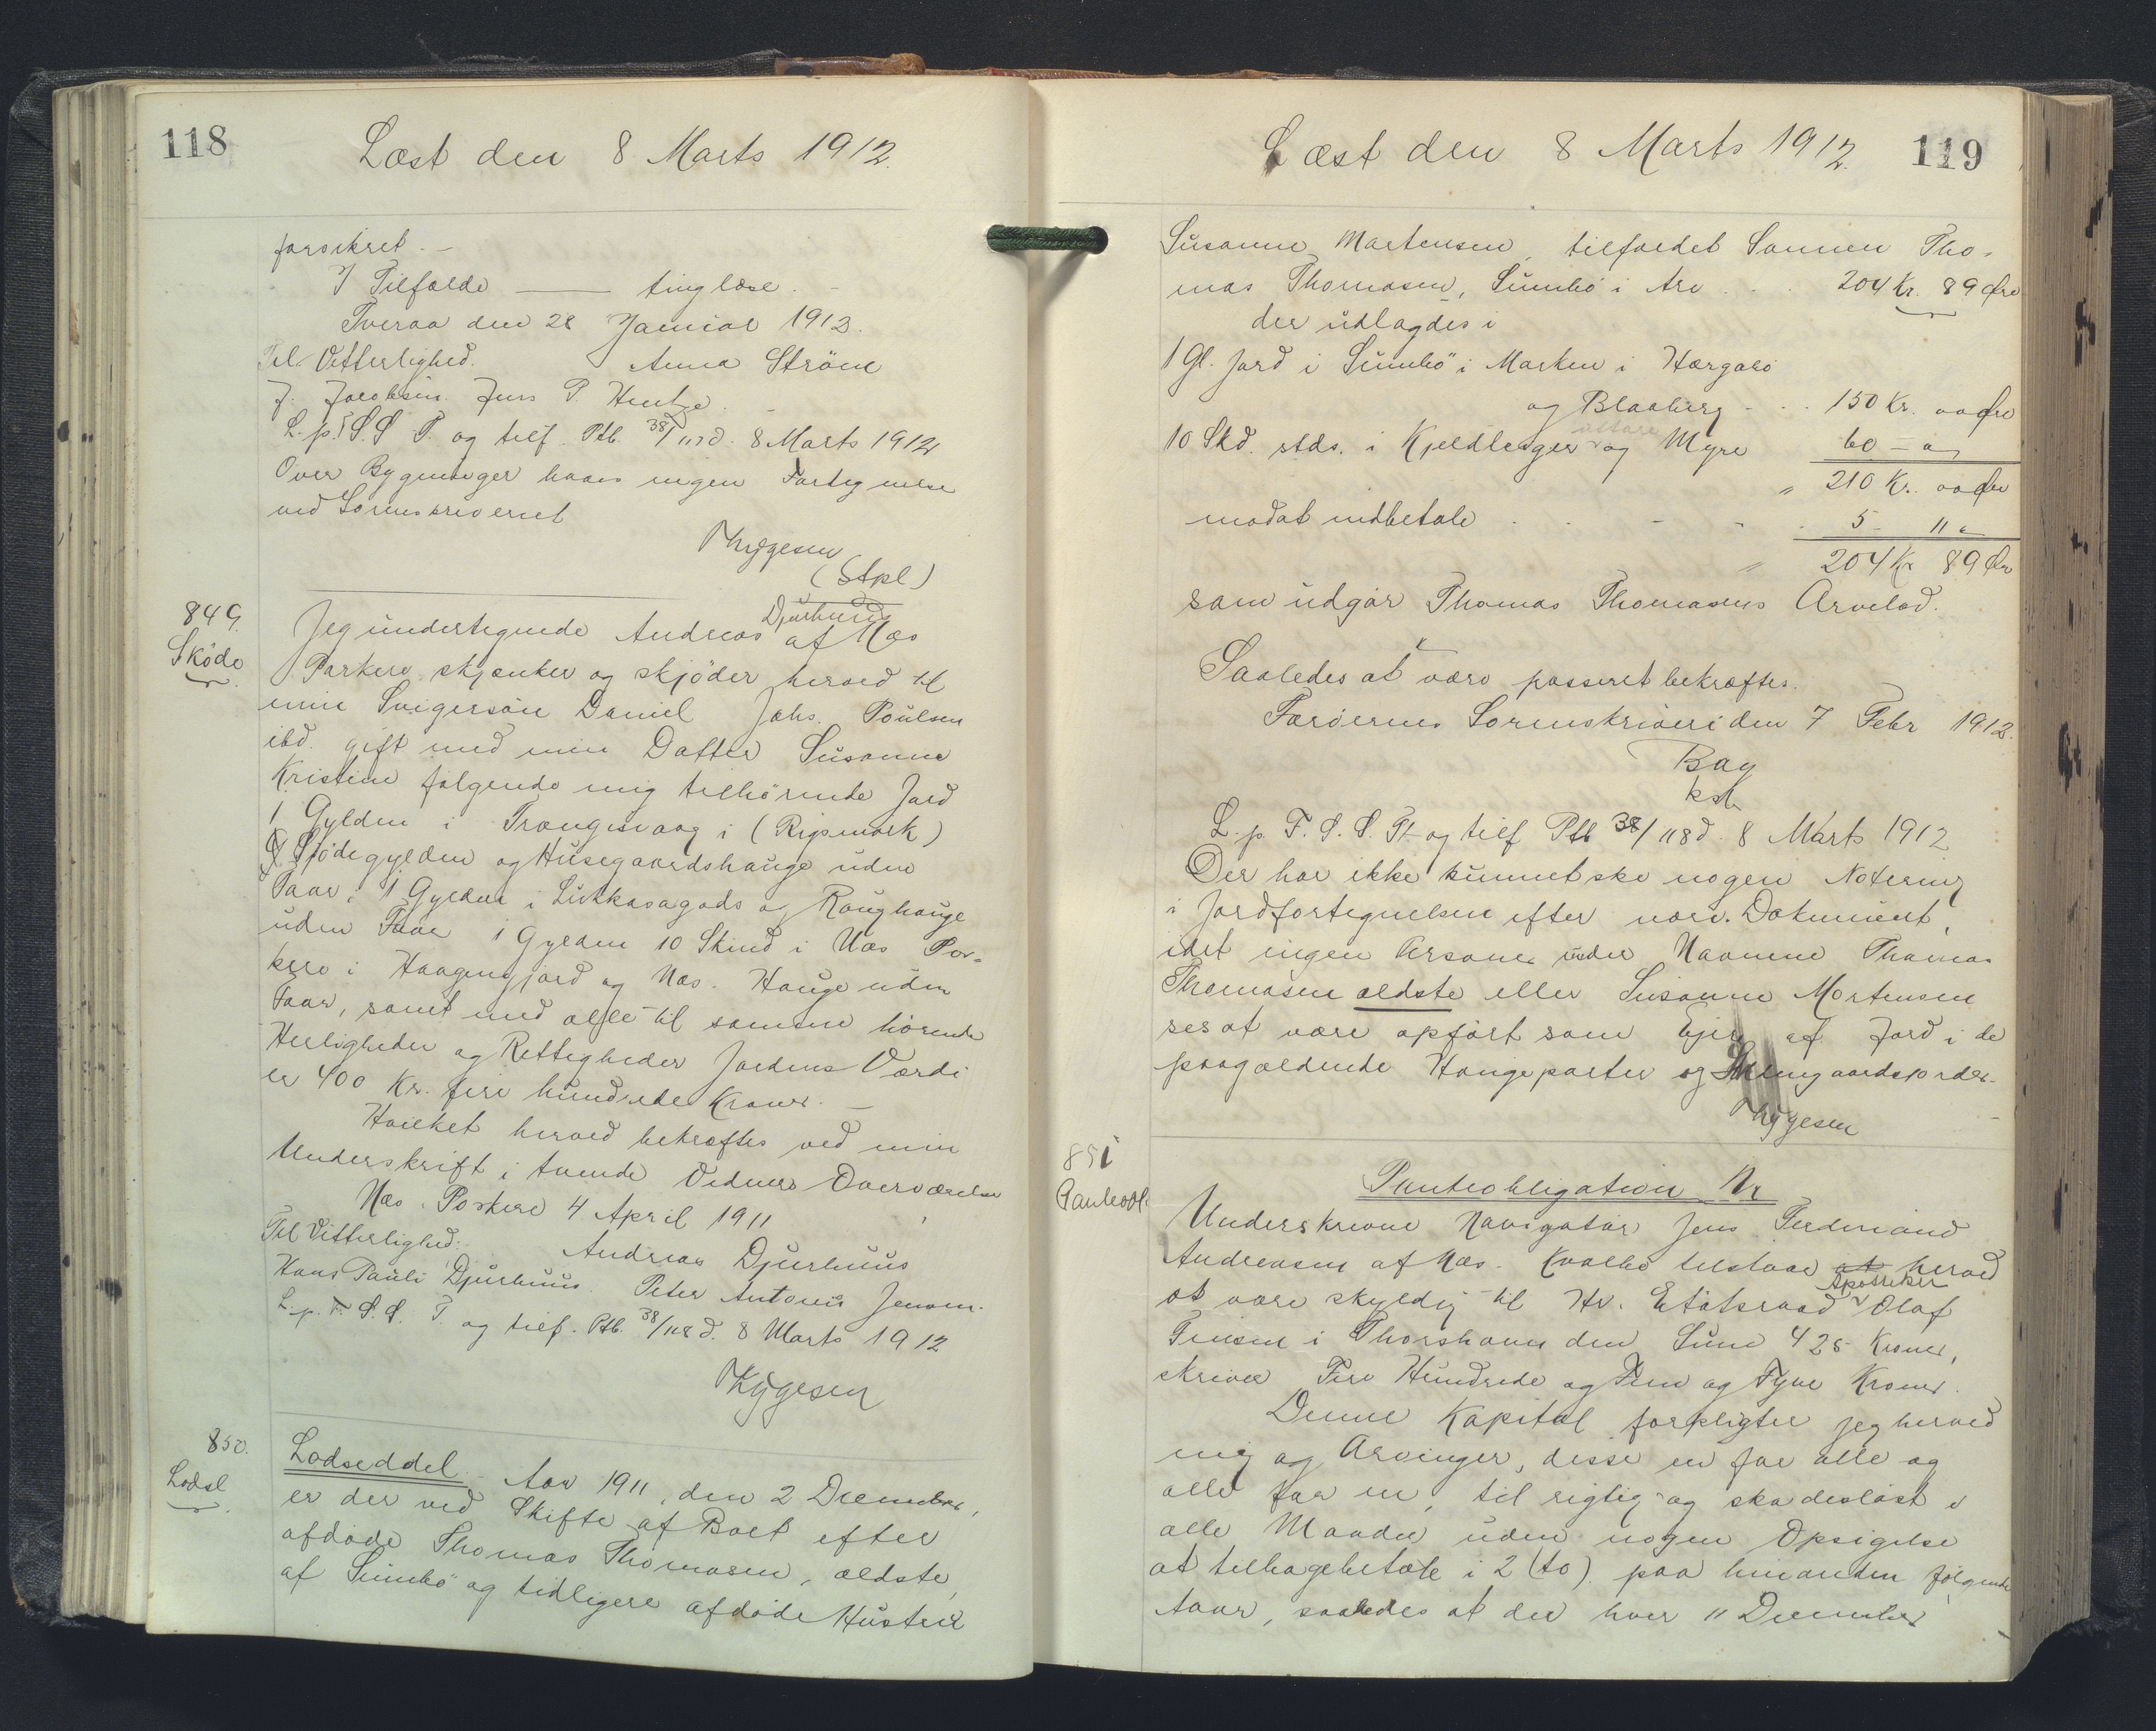 118
Læst den 8 Marts 1912.
forsikret. –
I Tilfælde —— tinglæse.
Tveraa den 28 Januar 1912.
Til Vitterlighed. Anna Ström
J. Jacobsen. Jens P. Hentze.
L. p. F. S. S. T. og tilf. Ptb. 38/117 d. 8 Marts 1912
Over Bygninger haves ingen Fortegnelse
ved Sorenskriveriet
Thygesen
(Stpl)
849.
Skøde
Djurhuus
Jeg undertegnede Andreas af Næs
Porkere skjænker og skjöder herved til
min Svigersön Daniel Johs. Poulsen
ibd. gift med min Datter Susanna
Kristine følgende mig tilhörende Jord
1 Gylden i Trangisvaag i (Ripmark)
og Stödigylden og Husegaardshauge uden
Faar, 1 Gylden i Lukkasagods og Rönghauge
uden Faar 1 Gylden 10 Skind i Næs Por-
kere i Haagensjord og Næs. Hauge uden
Faar, samt med alle til samme hörende
Herligheder og Rettigheder Jordens Værdi
er 400 Kr. fire hundrede Kroner. –
Hvilket herved bekræftes ved min
Underskrift i tvende Vidners Overværelse
Næs. Porkere 4 April 1911
Til Vitterlighed: Andreas Djurhuus
Hans Pauli Djurhuus. Peter Antonis Jensen.
L. p. F. S. S. T. og tilf. Ptb. 38/118 d. 8 Marts 1912
Thygesen
850.
Lodsl
Lodseddel. Aar 1911, den 2 December,
er der ved Skifte af Boet efter
afdöde Thomas Thomasen, ældste,
af Sumbö og tidligere afdöde Hustru
119
Læst den 8 Marts 1912.
Susanne Mortensen, tilfaldet Sønnen Tho-
mas Thomasen, Sumbö i Arv . . . 204 Kr. 89 Øre
der udlagdes i
1 Gl. Jord i Sumbö i Marken i Hørgalö
og Blaaberg - . . 150 Kr. oo Øre
10 Skd. stds. i Kjeldlenger og Myre 60 - "
" 210 Kr. oo Øre
modat indbetale . . - - . 5 - 11 "
" 204 Kr 89 Øre
som udgør Thomas Thomasens Arvelod.
Saaledes at være passeret bekræftes.
Færöernes Sorenskriveri den 7 Febr 1912.
Bay
kst
L. p. F. S. S. T. og tilf Ptb 38/118 d. 8 Marts 1912
Der har ikke kunnet ske nogen Notering
i Jordfortegnelsen efter nærv. Dokument,
idet ingen Personer under Navnene Thomas
Thomasen ældste eller Susanne Mortensen
ses at være opfört som Ejer af Jord i de
paagældende Haugeparter og
Thygesen
851
Panteobl.
Panteobligation Nr
Underskrevne Navigatør Jens Ferdinand
Andreasen af Næs. Kvalbö tilstaar at herved
Apotheker
at være skyldig til Hr. Etatsraad Olaf
Finsen i Thorshavn den Sum 425 Kroner,
skriver Fire Hundrede og Fem og Tyve Kroner.
Denne Kapital forpligter jeg herved
mig og Arvinger, disse en for alle og
alle for en, til rigtig og skadeslöst i
alle Maader uden nogen Opsigelse
at tilbagebetale i 2 (to) paa hinanden følgende
Aar, saaledes at der hver 11 December